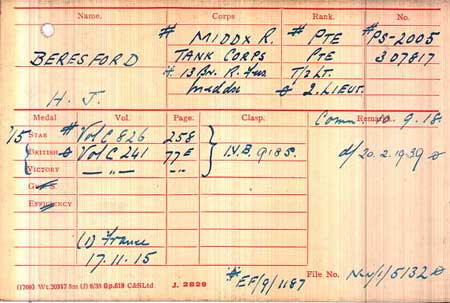 Name. Corps Rank. No.
# MIDDX R. # PTE #PS-2005
BERESFORD TANK CORPS PTE 307817
# 13 Bn. R. Fus T/2 LT.
H. J. Middx ⌀ 2. LIEUT.
Comm. 10.9.18.
Medal Vol. Page. Clasp. Remarks.
/15 STAR # Vol C 826 258
BRITISH ⌀ Vol C 241 77E I.V.B. 9185. d/ 20.2.1939 ⌀
VICTORY — " — — " —
GHS
EFFICIENCY
(1) France
17.11.15
File No. NW/1/5132 ⌀
#EF/9/1187
(1700) Wt.20317 5m (J) 9/38 Gp.618 C&SLtd J. 2829